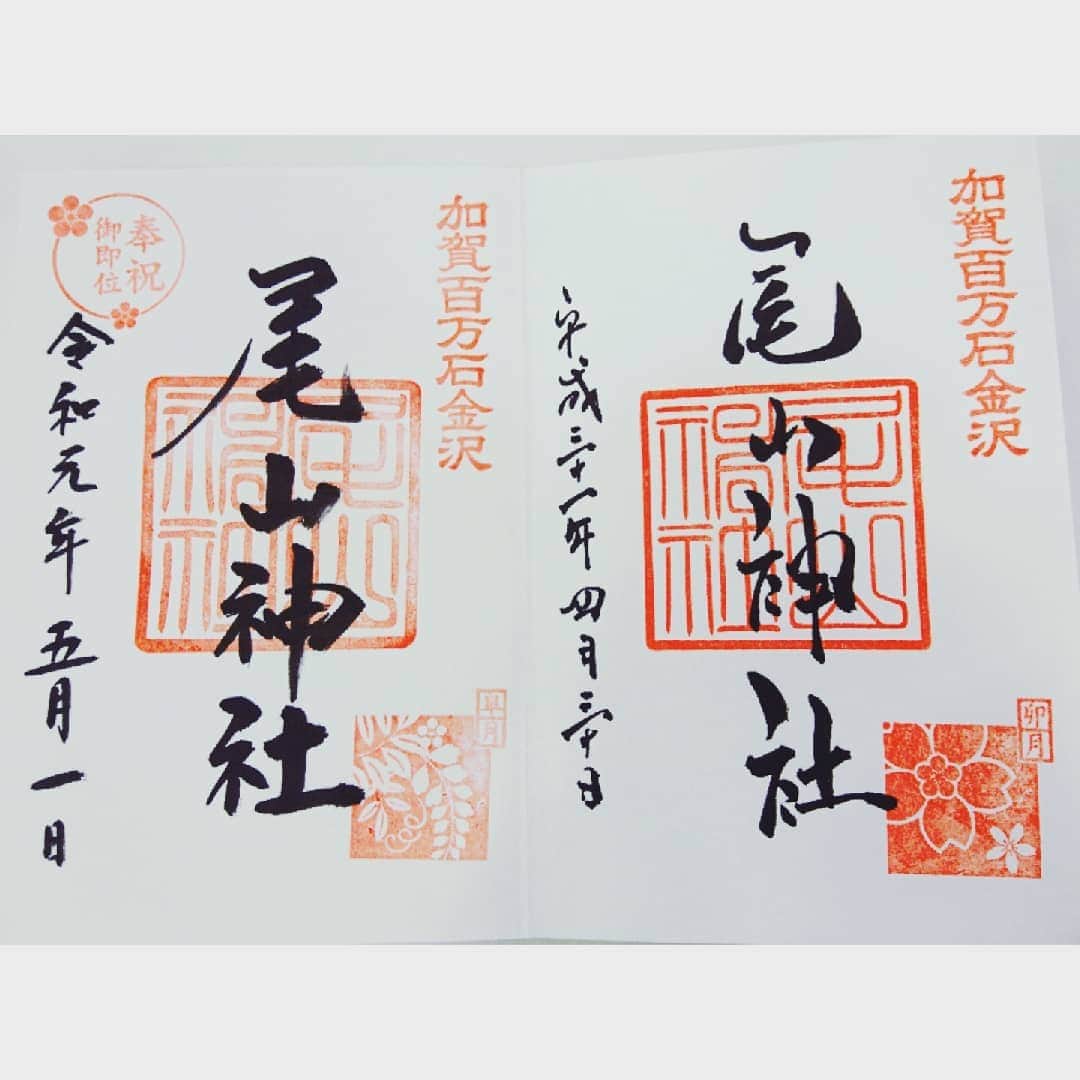 加賀百万石金沢
尾山神社
平成三十一年四月三十日
卯月
加賀百万石金沢
尾山神社
奉祝
御即位
令和元年五月一日
皐月
尾山
神社
尾山
神社